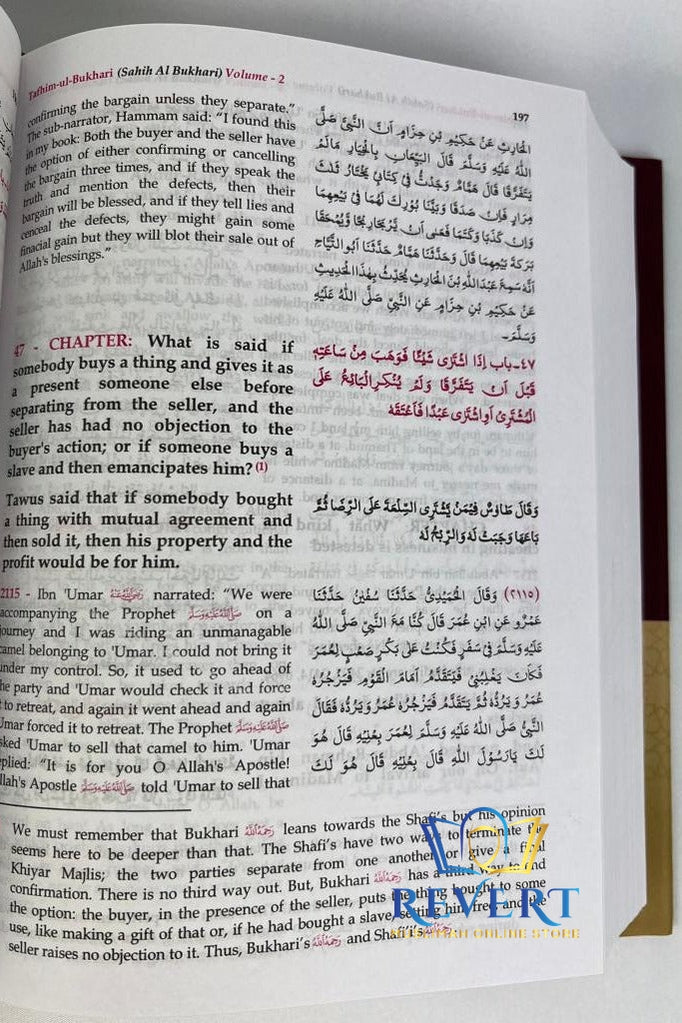 Tafhim-ul-Bukhari (Sahih Al Bukhari) Volume - 2
197
confirming the bargain unless they separate."
The sub-narrator, Hammam said: "I found this
in my book: Both the buyer and the seller have
the option of either confirming or cancelling
the bargain three times, and if they speak the
truth and mention the defects, then their
bargain will be blessed, and if they tell lies and
conceal the defects, they might gain some
finacial gain but they will blot their sale out of
Allah's blessings."
الحَارِثِ عَنْ حَكِيْمِ بْنِ حِزَامٍ اَنَّ النَّبِىَّ صَلَّى
اللّٰهُ عَلَيْهِ وَسَلَّمَ قَالَ الْبَيِّعَانِ بِالْخِيَارِ مَالَمْ
يَتَفَرَّقَا قَالَ هَمَّامٌ وَجَدْتُ فِىْ كِتَابِىْ يَخْتَارُ ثَلٰثَ
مِرَارٍ فَاِنْ صَدَقَا وَبَيَّنَا بُوْرِكَ لَهُمَا فِىْ بَيْعِهِمَا
وَاِنْ كَذَبَا وَكَتَمَا فَعَسٰى اَنْ يَّرْبَحَا رِبْحًا وَّيُمْحَقَا
بَرَكَةَ بَيْعِهِمَا قَالَ وَحَدَّثَنَا هَمَّامٌ حَدَّثَنَا اَبُو التَّيَّاحِ
اَنَّهٗ سَمِعَ عَبْدَ اللّٰهِ بْنَ الْحَارِثِ يُحَدِّثُ بِهٰذَا الْحَدِيْثِ
عَنْ حَكِيْمِ بْنِ حِزَامٍ عَنِ النَّبِىِّ صَلَّى اللّٰهُ عَلَيْهِ
وَسَلَّمَ۔
47 - CHAPTER: What is said if
somebody buys a thing and gives it as
a present someone else before
separating from the seller, and the
seller has had no objection to the
buyer's action; or if someone buys a
slave and then emancipates him? (1)
٤٧۔بَاب اِذَا اشْتَرٰى شَيْئًا فَوَهَبَ مِنْ سَاعَتِهٖ
قَبْلَ اَنْ يَتَفَرَّقَا وَلَمْ يُنْكِرِ الْبَائِعُ عَلَى
الْمُشْتَرِىْ اَوِ اشْتَرٰى عَبْدًا فَاَعْتَقَهٗ
Tawus said that if somebody bought
a thing with mutual agreement and
then sold it, then his property and the
profit would be for him.
وَقَالَ طَاوٗسٌ فِيْمَنْ يَّشْتَرِى السِّلْعَةَ عَلَى الرِّضَا ثُمَّ
بَاعَهَا وَجَبَتْ لَهٗ وَالرِّبْحُ لَهٗ
2115 - Ibn 'Umar رضى الله عنه narrated: "We were
accompanying the Prophet صلى الله عليه وسلم on a
journey and I was riding an unmanagable
camel belonging to 'Umar. I could not bring it
under my control. So, it used to go ahead of
he party and 'Umar would check it and force
t to retreat, and again it went ahead and again
Umar forced it to retreat. The Prophet صلى الله عليه وسلم
sked 'Umar to sell that camel to him. 'Umar
eplied: "It is for you O Allah's Apostle!
llah's Apostle صلى الله عليه وسلم told 'Umar to sell that
(٢١١٥) وَقَالَ الْحُمَيْدِىُّ حَدَّثَنَا سُفْيٰنُ حَدَّثَنَا
عَمْرٌو عَنِ ابْنِ عُمَرَ قَالَ كُنَّا مَعَ النَّبِىِّ صَلَّى اللّٰهُ
عَلَيْهِ وَسَلَّمَ فِىْ سَفَرٍ فَكُنْتُ عَلٰى بَكْرٍ صَعْبٍ لِعُمَرَ
فَكَانَ يَغْلِبُنِىْ فَيَتَقَدَّمُ اَمَامَ الْقَوْمِ فَيَزْجُرُهٗ
عُمَرُ وَيَرُدُّهٗ ثُمَّ يَتَقَدَّمُ فَيَزْجُرُهٗ عُمَرُ وَيَرُدُّهٗ فَقَالَ
النَّبِىُّ صَلَّى اللّٰهُ عَلَيْهِ وَسَلَّمَ لِعُمَرَ بِعْنِيْهِ قَالَ هُوَ
لَكَ يَارَسُوْلَ اللّٰهِ قَالَ بِعْنِيْهِ قَالَ هُوَ لَكَ
We must remember that Bukhari رحمه الله leans towards the Shafi's but his opinion
seems here to be deeper than that. The Shafi's have two ways to terminate the
Khiyar Majlis; the two parties separate from one another or give a final
confirmation. There is no third way out. But, Bukhari رحمه الله has a third way to end
the option: the buyer, in the presence of the seller, puts the thing bought to some
use, like making a gift of that or, if he had bought a slave, setting him free and the
seller raises no objection to it. Thus, Bukhari's رحمه الله and Shafi'i's رحمه الله
REVERT
ONLINE STORE